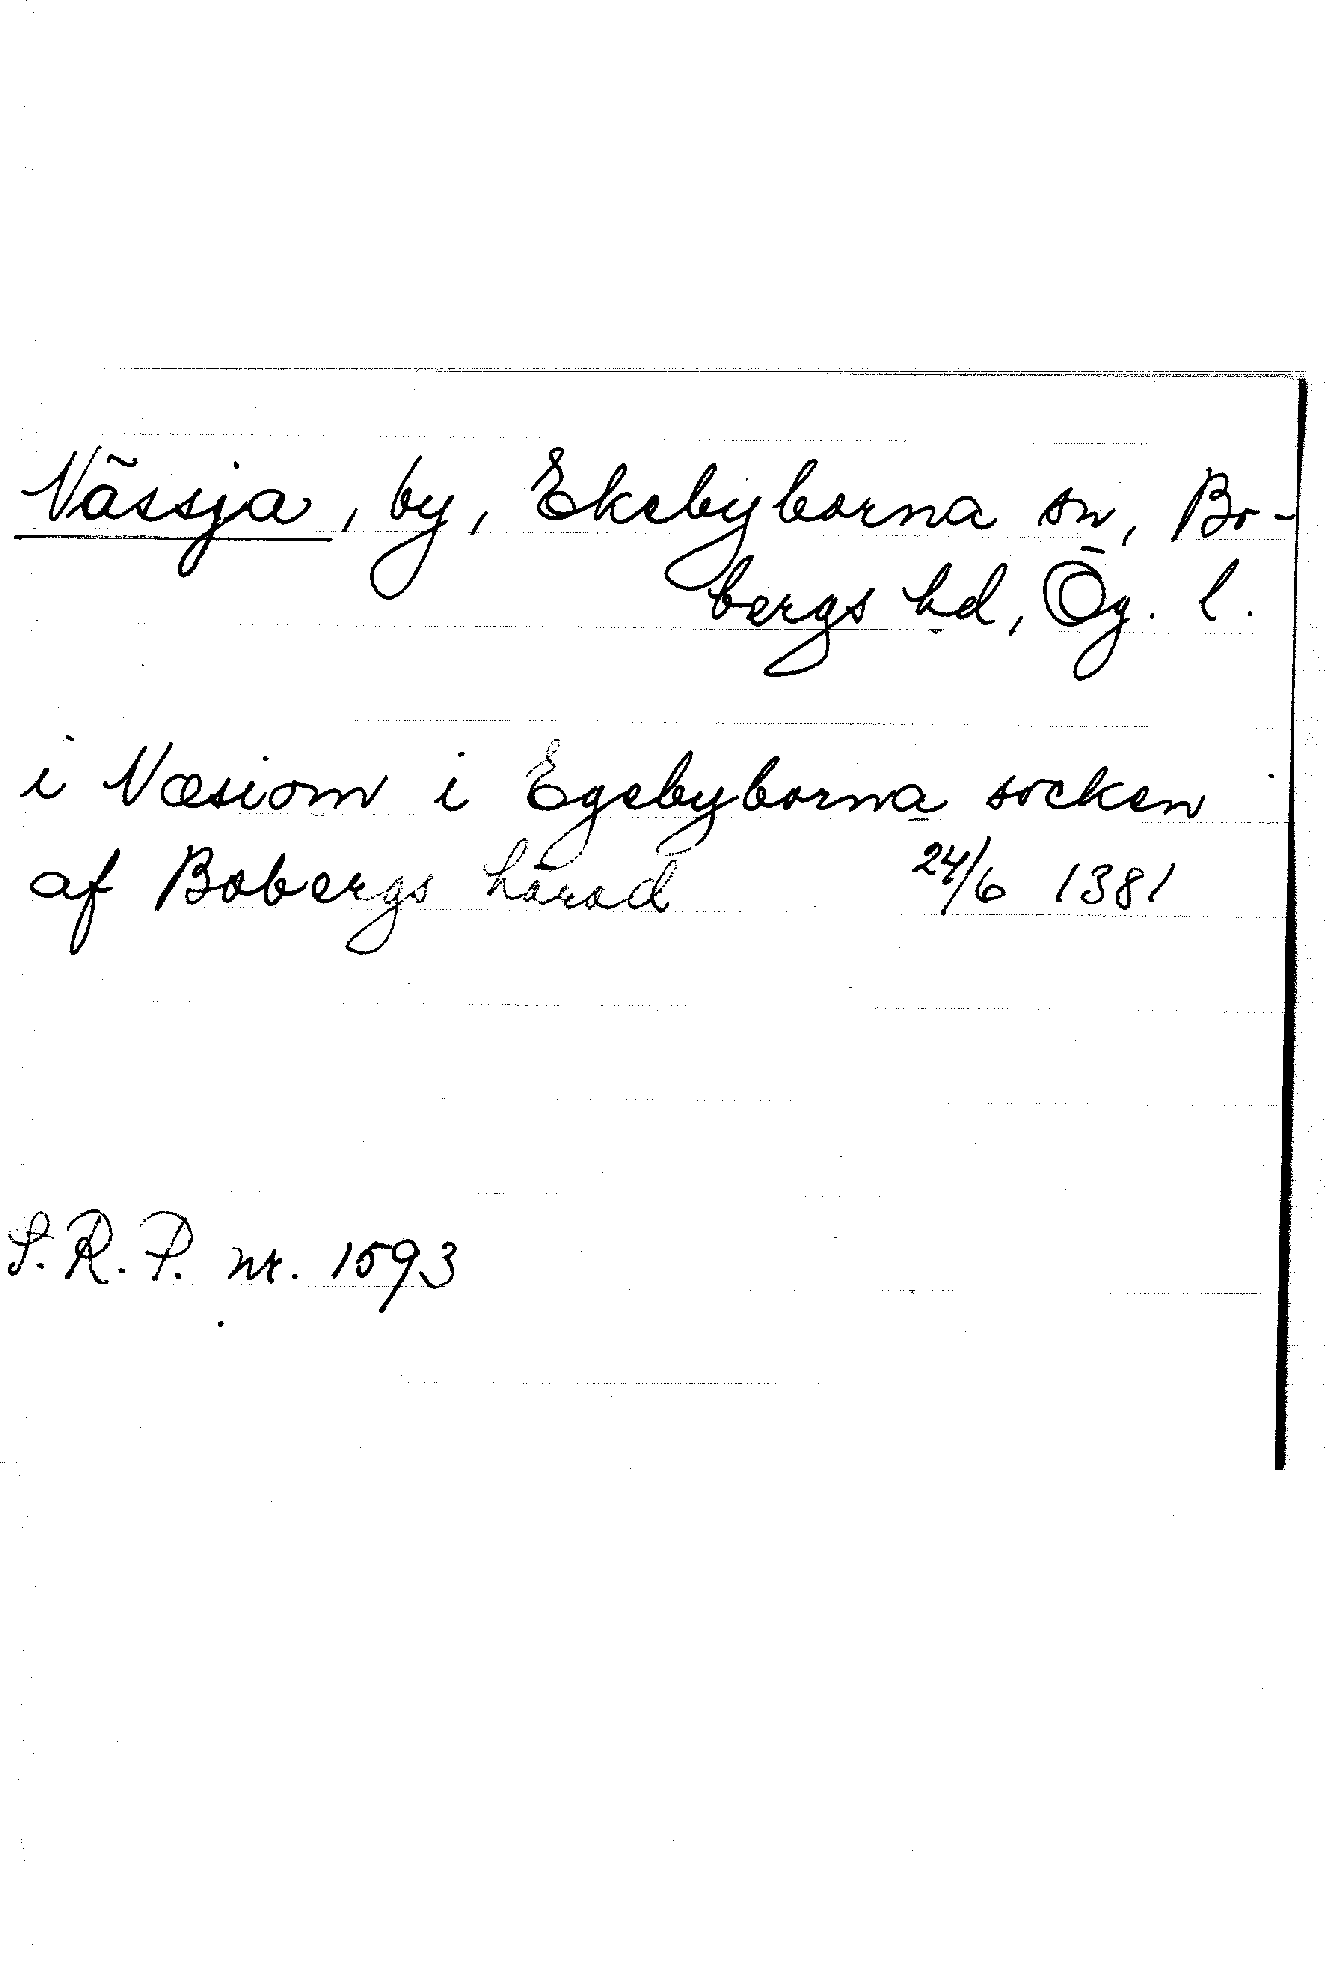 Nässja, by, Ekebyborna sn, Bo-
bergs hd, Ög. l.
i Næsiom i Egebyborna socken
af Bobergs härad 24/6 1381
S.R.P. nr. 1593